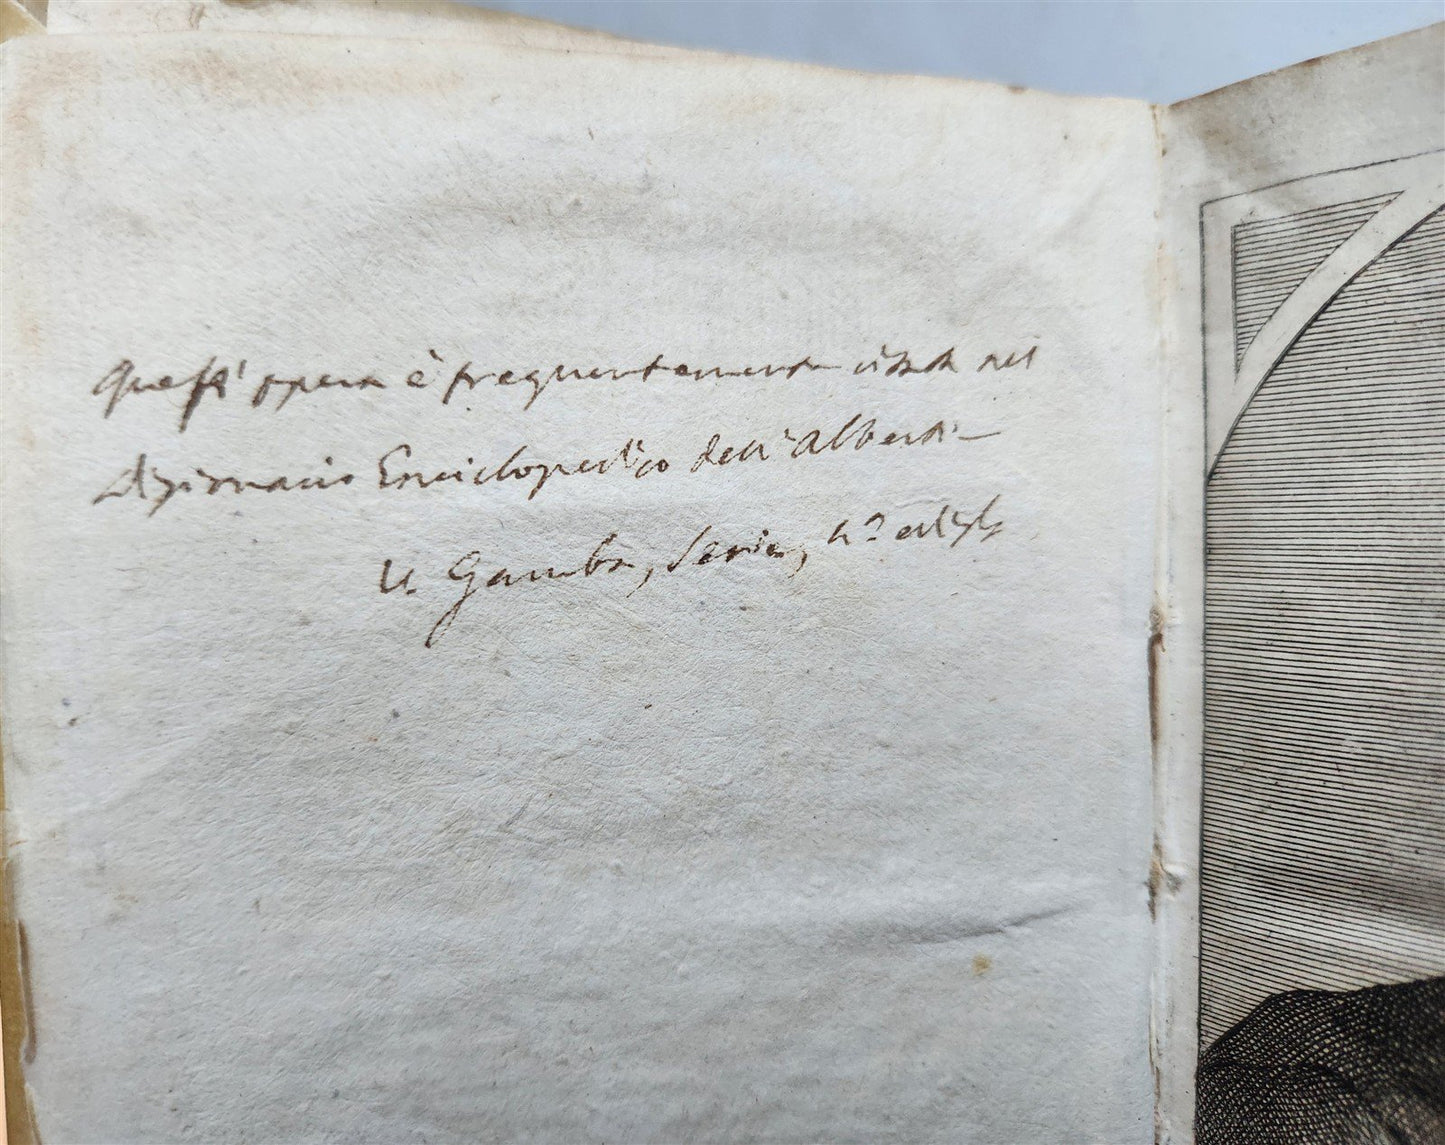 Quest' opera è frequentemente citata nel
Dizionario Enciclopedico dell'Alberti—
V. Gamba, Serie, n.º